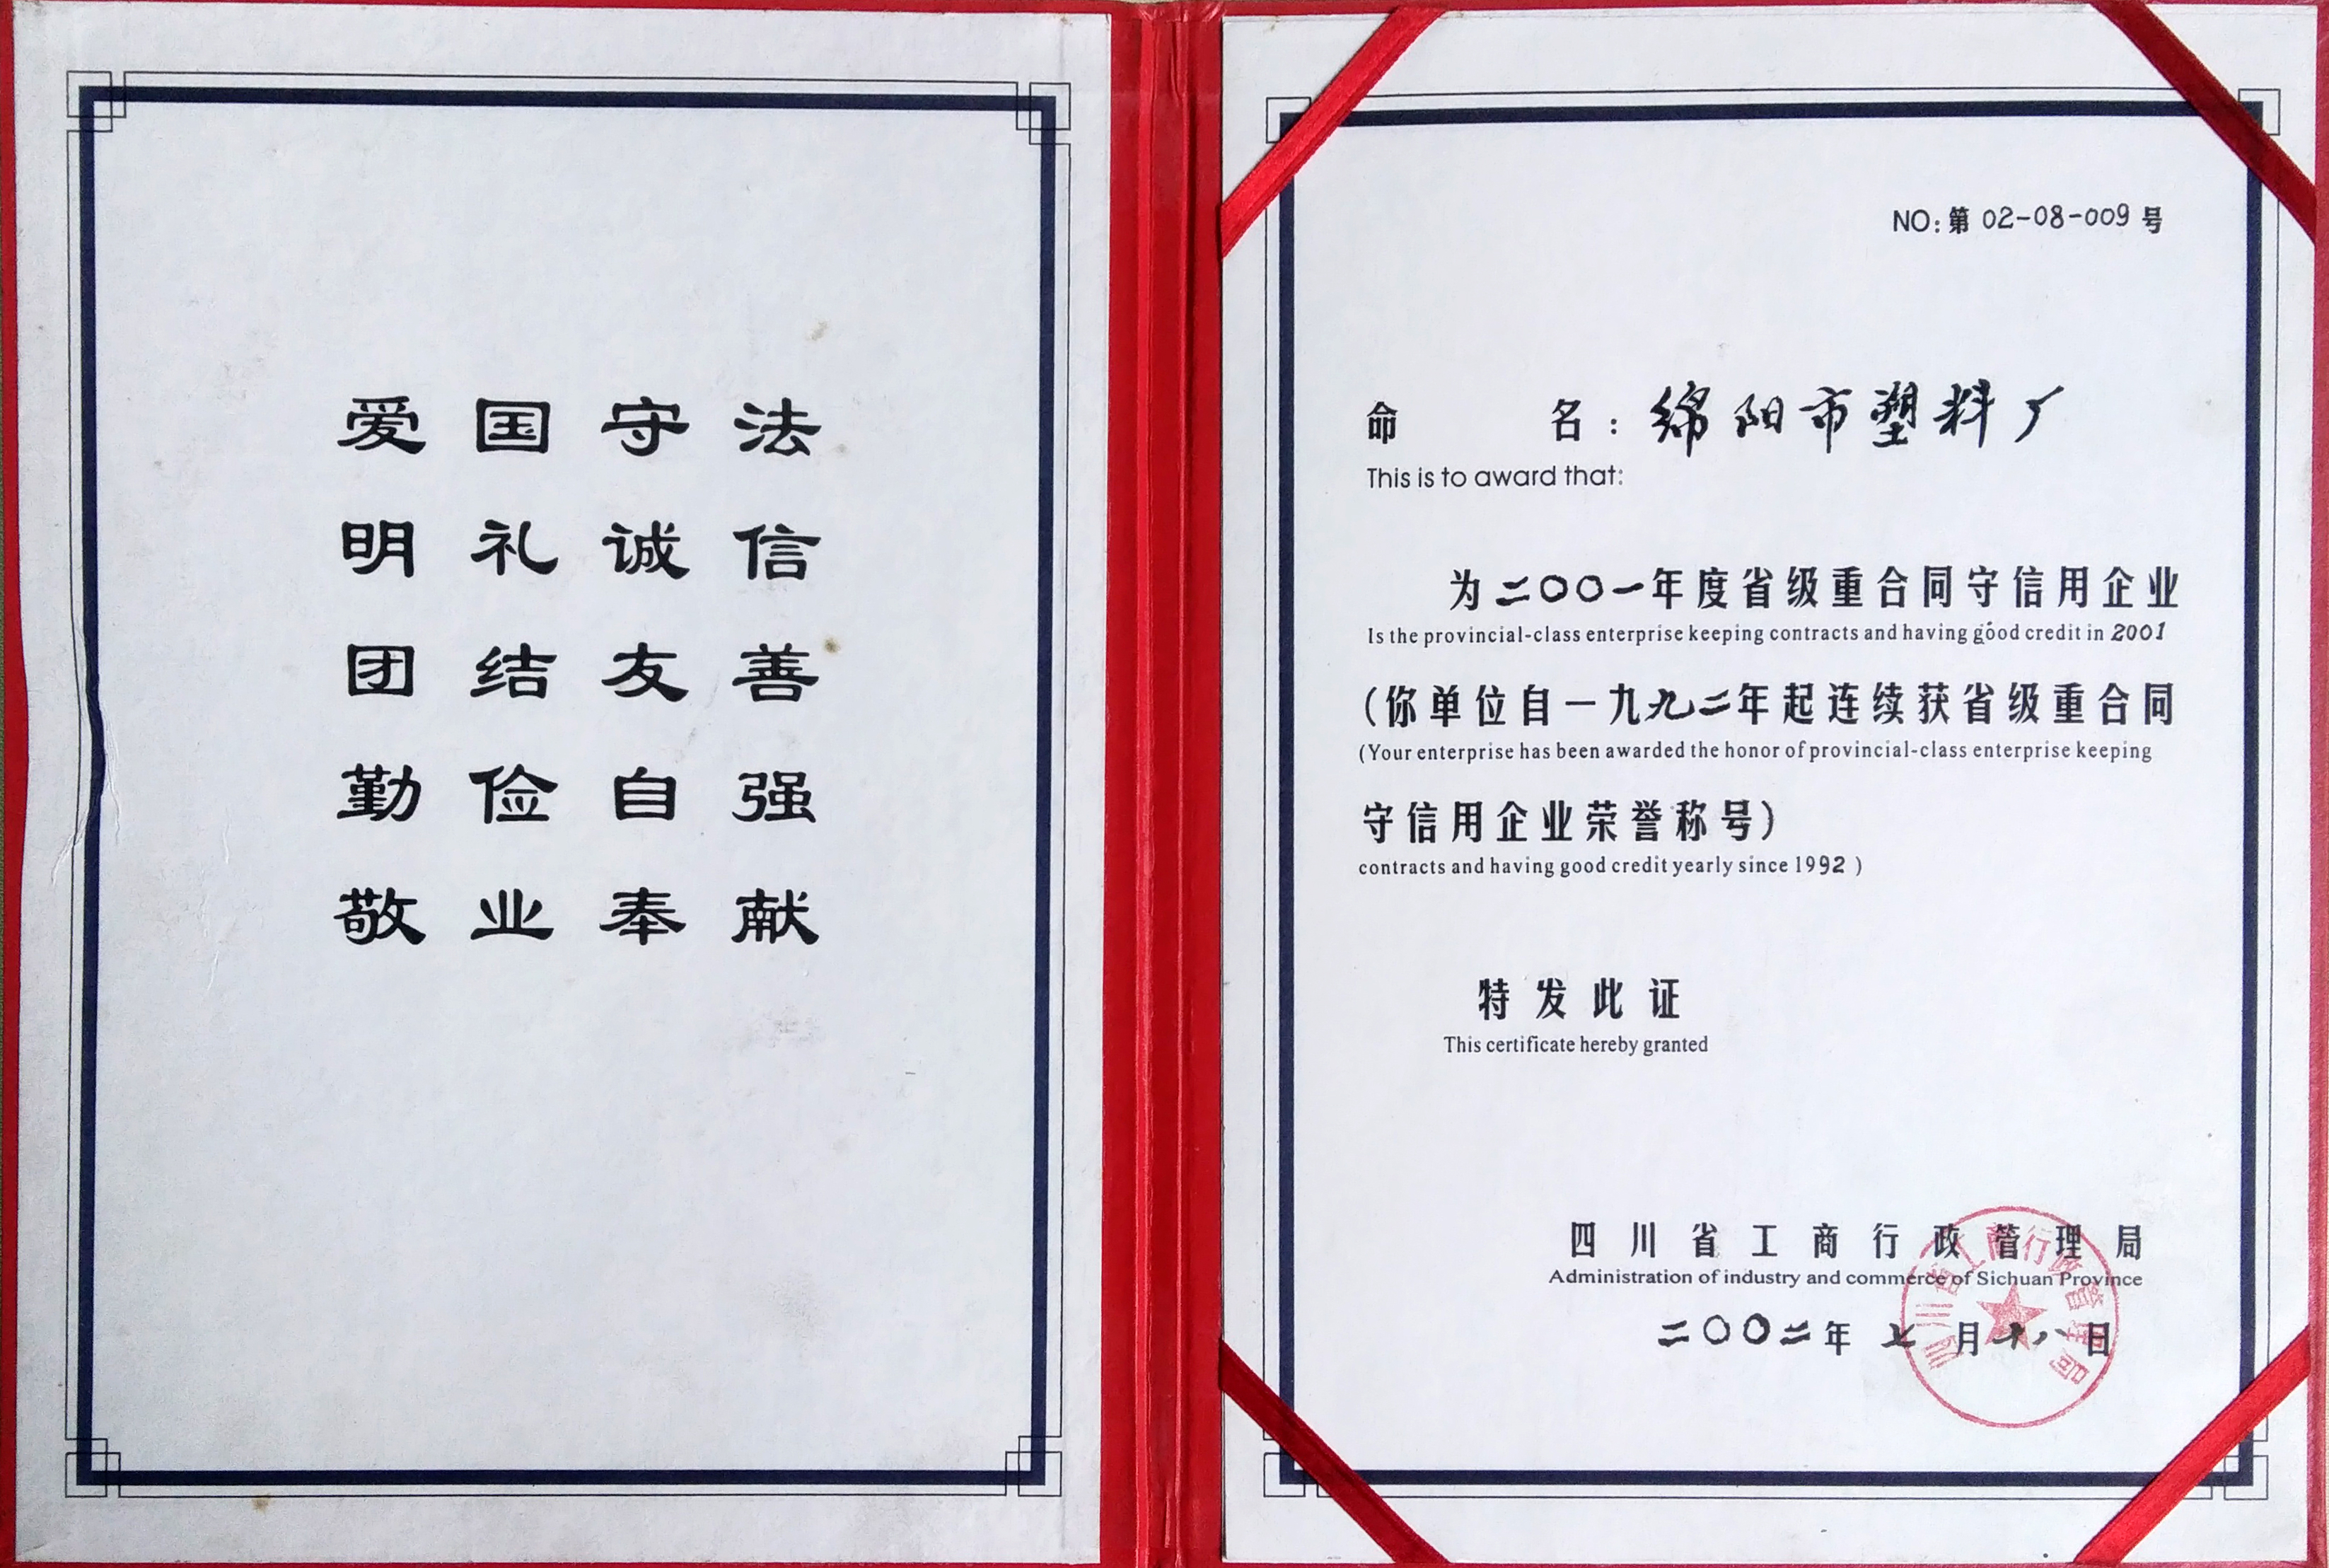 爱国守法
明礼诚信
团结友善
勤俭自强
敬业奉献
NO:第 02-08-009 号
命 名:绵阳市塑料厂
This is to award that:
为二〇〇一年度省级重合同守信用企业
Is the provincial-class enterprise keeping contracts and having good credit in 2001
(你单位自一九九二年起连续获省级重合同
(Your enterprise has been awarded the honor of provincial-class enterprise keeping
守信用企业荣誉称号)
contracts and having good credit yearly since 1992 )
特发此证
This certificate hereby granted
四川省工商行政管理局
Administration of industry and commerce of Sichuan Province
二〇〇二年七月十八日
四川省工商行政管理局